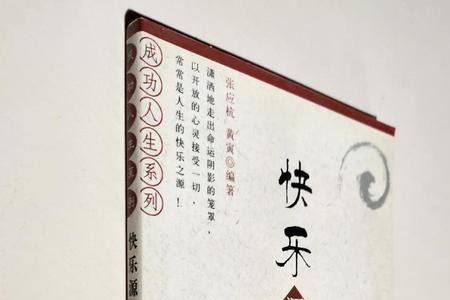 成功人生系列
张应杭 黄寅◎编著
潇洒地走出命运阴影的笼罩，
以开放的心灵接受一切，
常常是人生的快乐之源！
快乐
成功人生系列
快乐源